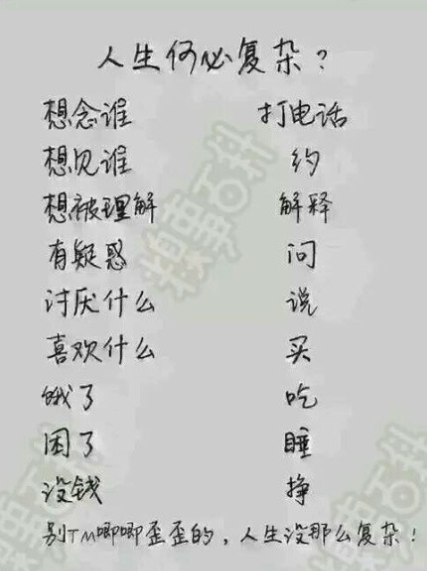 人生何必复杂？
想念谁 打电话
想见谁 约
想被理解 解释
有疑惑 问
讨厌什么 说
喜欢什么 买
饿了 吃
困了 睡
没钱 挣
别TM唧唧歪歪的，人生没那么复杂！
糗事百科